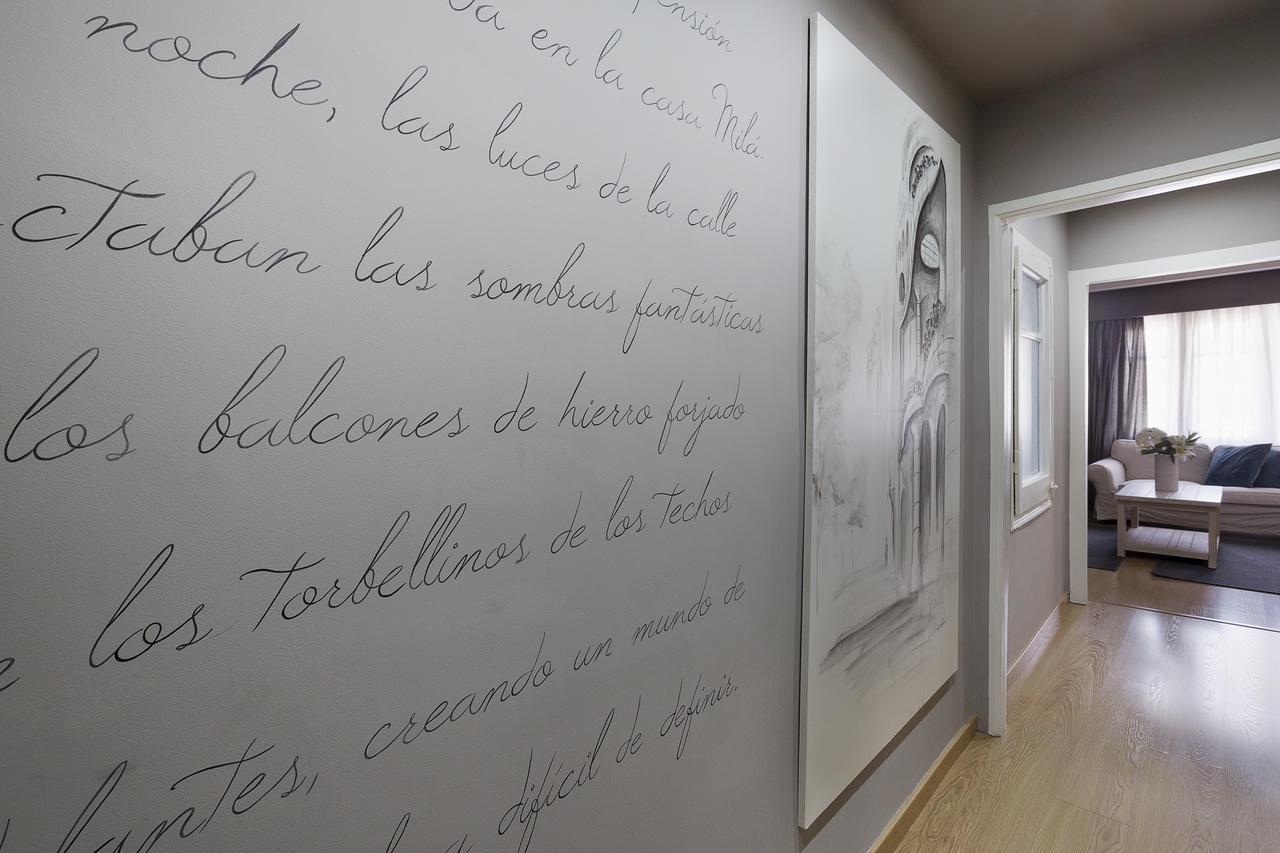 en la casa Milá.
noche, las luces de la calle
las sombras fantásticas
los balcones de hierro forjado
los torbellinos de los techos
creando un mundo de
difícil de definir.